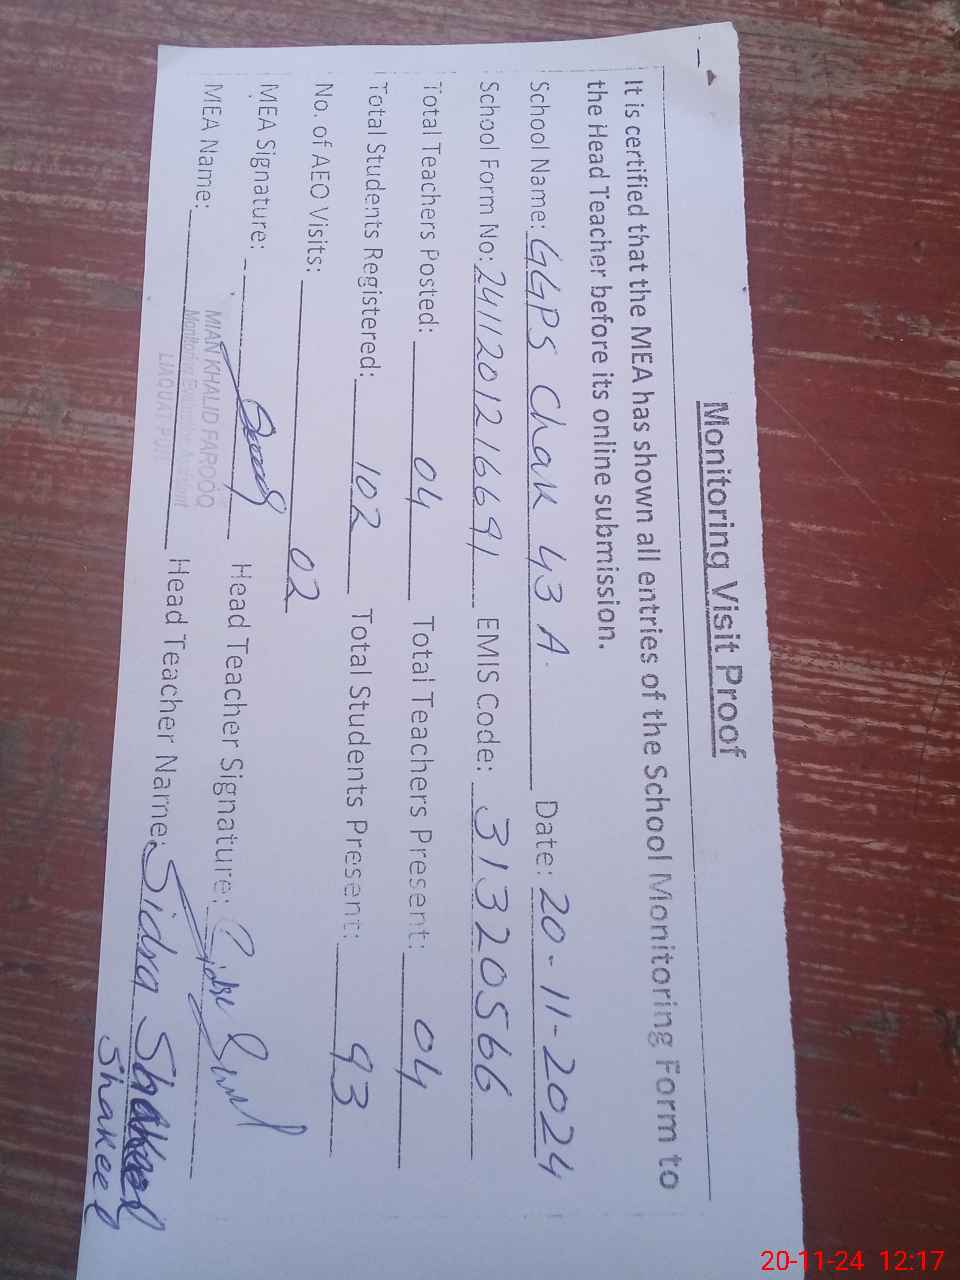 Monitoring Visit Proof
It is certified that the MEA has shown all entries of the School Monitoring Form to
the Head Teacher before its online submission.
School Name: GGPS Chak 43 A. Date: 20-11-2024
School Form No: 2411201216691 EMIS Code: 31320566
Total Teachers Posted: 04 Total Teachers Present: 04
Total Students Registered: 102 Total Students Present: 93
No. of AEO Visits: 02
MEA Signature: Head Teacher Signature:
MIAN KHALID FAROOQ
MEA Name: Monitoring Evaluation Assistant Head Teacher Name: Sidra Shakeel
LIAQUAT PUR
Shakeel
20-11-24 12:17